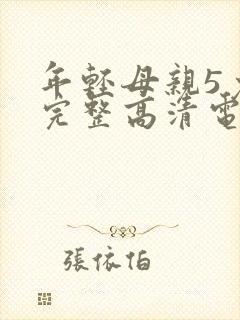 年輕母親5
完整高清電
張依怕